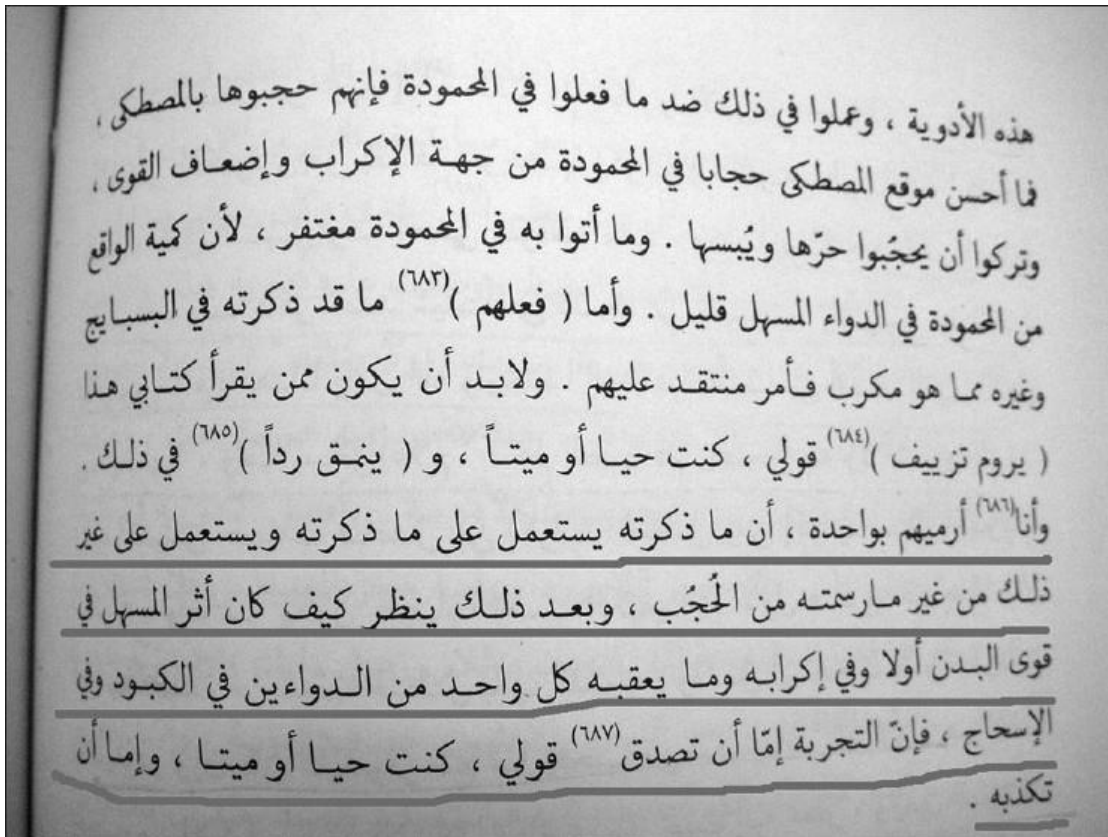 هذه الأدوية ، وعملوا في ذلك ضد ما فعلوا في المحمودة فإنهم حجبوها بالمصطكى ،
فما أحسن موقع المصطكى حجابا في المحمودة من جهـة الإكراب وإضعـاف القوى ،
وتركوا أن يحجُبوا حرّها ويُبسها . وما أتوا به في المحمودة مغتفر ، لأن كمية الواقع
من المحمودة في الدواء المسهل قليل . وأما ( فعلهم )(٦٨٣) ما قد ذكرته في البسبـايج
وغيره ممـا هو مكرب فـأمر منتقـد عليهم . ولابـد أن يكون ممن يقرأ كتـابي هـذا
( يروم تزييف )(٦٨٤) قولي ، كنت حيـا أو ميتـاً ، و ( ينمـق رداً )(٦٨٥) في ذلـك .
وأنا(٦٨٦) أرميهم بواحدة ، أن ما ذكرته يستعمل على ما ذكرته ويستعمل على غير
ذلـك من غير مـا رسمتـه من الُحجُب ، وبعـد ذلـك ينظر كيف كان أثر المسهل في
قوى البـدن أولا وفي إكرابـه ومـا يعقبـه كل واحـد من الـدواءين في الكبـود وفي
الإسحاج ، فإنّ التجربة إمّا أن تصدق(٦٨٧) قولي ، كنت حيـا أو ميتـا ، وإمـا أن
تكذبه .